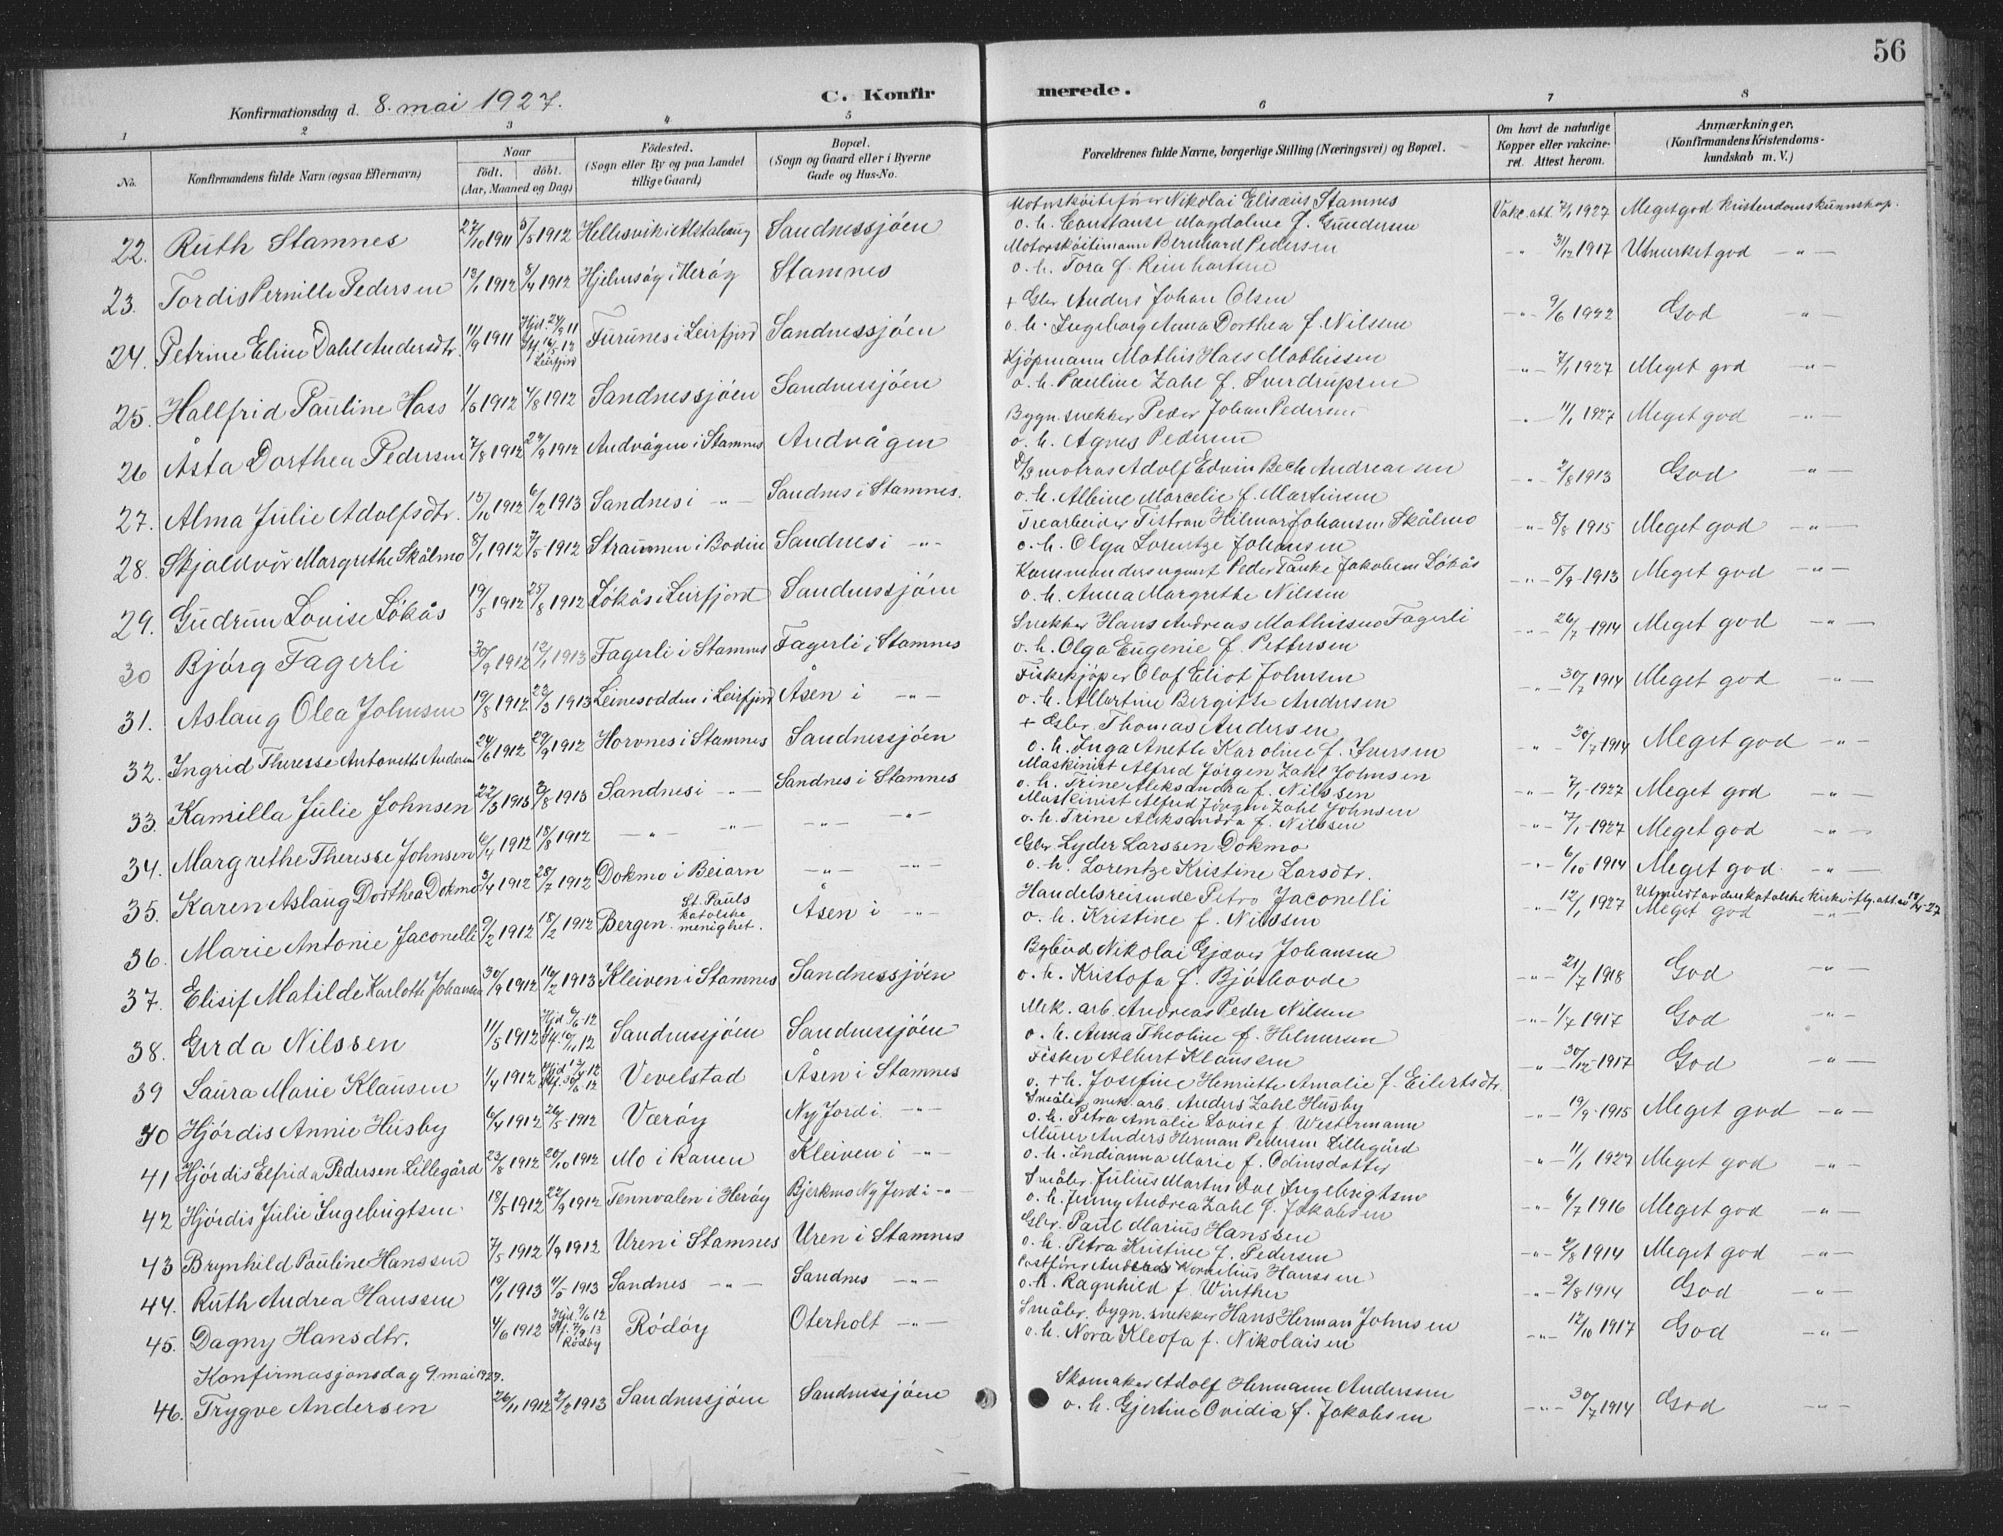 56
Konfirmationsdag d. 8. mai 1927. C. Konfir merede.
1 2 3 4 5 6 7 8
No. Konfirmandens fulde Navn (ogsaa Efternavn) Naar født. døbt. (Aar, Maaned og Dag) Fødested. (Sogn eller By og paa Landet tillige Gaard) Bopæl. (Sogn og Gaard eller i Byerne Gade og Hus-No. Forældrenes fulde Navne, borgerlige Stilling (Næringsvei) og Bopæl. Om havt de naturlige Kopper eller vakcineret. Attest herom. Anmærkninger. (Konfirmandens Kristendomskundskab m. V.)
22. Ruth Stamnes 27/10 1911 5/5 1912 Hellesvik i Alstahaug Sandnessjöen Motorskøitefører Nikolai Elisæus Stamnes
o. h. Constanse Magdaline f. Gundersen Vakc. att. 7/1 1927 Meget god kristendomskunnskap.
23. Tordis Pernille Pedersen 13/1 1912 8/4 1912 Hjelmsöy i Heröy Stamnes Motorskøitemann Bernhard Pedersen
o. h. Tora f. Reinhartsen -"- 31/12 1917 Utmerket god -"-
24. Petrine Eline Dahl Andersdtr. 11/9 1911 Hjd. 24/9 11 Stf. 16/5 12 Leirfjord Furunes i Leirfjord Sandnessjöen + Gbr Anders Johan Olsen
o. h. Ingeborg Anna Dorthea f. Nilssen -"- 9/6 1922 God -"-
25. Hallfrid Pauline Hass 1/5 1912 4/8 1912 Sandnessjöen Sandnessjöen Kjøpmann Mathis Hass Mathissen
o. h. Pauline Zahl f. Sverdrupsen -"- 7/1 1927 Meget god -"-
26 Åsta Dorthea Pedersen 7/8 1912 29/9 1912 Andvågen i Stamnes Andvågen Bygn. snekker Peder Johan Pedersen
o. h. Agnes Pedersen -"- 11/1 1927 Meget god -"-
27. Alma Julie Adolfsdtr. 13/10 1912 6/2 1913 Sandnes i -"- Sandnes i Stamnes. D/S matros Adolf Edvin Bech Andreassen
o. h. Albine Marcelie f. Martinsen -"- 2/8 1913 God -"-
28. Skjaldvör Margrethe Skålmo 8/1 1912 2/5 1912 Straumen i Bodin Sandnes i -"- Trearbeider Tistran Hilmar Johansen Skålmo
o. h. Olga Lorentze Johansen -"- 8/8 1915 Meget god -"-
29. Gudrun Lovise Lökås 19/5 1912 25/8 1912 Lökås i Leirfjord Sandnessjöen Kommandersergeant Peder Tanke Jakobsen Lökås
o. h. Anna Margrethe Nilssen -"- 5/9 1913 Meget god -"-
30 Bjórg Fagerli 30/9 1912 12/1 1913 Fagerli i Stamnes Fagerli i Stamnes Snekker Hans Andreas Mathissen Fagerli
o. h. Olga Eugenie f. Pettersen -"- 26/7 1914 Meget god -"-
31. Aslaug Olea Johnsen 19/8 1912 23/3 1913 Leinesodden i Leirfjord Åsen i -"- Fiskekjöper Olof Eliot Johnsen
o. h. Albertine Bergitte Andersen -"- 30/7 1914 Meget god -"-
32. Ingrid Theresse Antonette Andersen 24/6 1912 29/9 1912 Horvnes i Stamnes Sandnessjöen + Gbr. Thomas Andersen
o. h. Inga Anette Karoline f. Iversen " 30/7 1914 Meget god -"-
33. Kamilla Julie Johnsen 22/3 1913 3/8 1913 Sandnes i -"- Sandnes i Stamnes Maskinist Alfred Jörgen Zahl Johnsen
o. h. Trine Aleksandra f. Nilssen -"- 7/1 1927 Meget god -"-
34. Margrethe Theresse Johnsen 6/4 1912 18/8 1912 -"- -"- -"- -"- Maskinist Alfred Jörgen Zahl Johnsen
o. h. Trine Aleksandra f. Nilssen -"- 7/1 1927 Meget god -"-
35. Karen Aslaug Dorthea Dokmo 3/4 1912 28/7 1912 Dokmo i Beiarn -"- -"- Gbr Lyder Larssen Dokmo
o. h. Lorentze Kristine Larsdtr. -"- 6/10 1914 Meget god. -"-
36. Marie Antonie Jaconelli 9/2 1912 18/2 1912 Bergen. St. Pauls katolske menighet. Åsen i -"- Handelsreisende Petro Jaconelli
o. h. Kristine f. Nilssen -"- 12/1 1927 Utmeldt av den katolske kirke iflg. att. av -27
Meget god -"-
37. Elisif Matilde Karlotte Johansen 30/9 1912 16/2 1913 Kleiven i Stamnes Sandnessjöen Bybud Nikolai Gjæver Johansen
o. h. Kristofa f. Bjórhovde -"- 21/7 1918 God -"-
38. Gerda Nilssen 11/5 1912 Hjd 6/6 12 Stf. 10/11 12 Sandnessjöen Sandnessjöen Mek. arb. Andreas Peder Nilsen
o. h. Anna Theoline f. Helmersen -"- 1/7 1917 God -"-
39 Laura Marie Klausen 1/4 1912 Hjd 17/4 12 Stf. 30/6 12 Vevelstad Åsen i Stamnes Fisker Albert Klausen
o. + h. Josefine Henriette Amalie f. Eilertsdtr. " 30/12 1917 God -"-
40 Hjórdis Annie Husby 6/4 1912 26/5 1912 Væröy Ny Jord i -"- Småbr, mek. arb. Anders Zahl Husby
o. h. Petra Amalie Lovise f. Westermann -"- 19/9 1915 Meget god -"-
41 Hjórdis Elfrida Pedersen Lillegård 23/8 1912 20/10 1912 Mo i Ranen Kleiven i -"- Murer Anders Herman Pedersen Lillegård
o. h. Indianna Marie f. Odinsdatter -"- 11/1 1927 Meget god -"-
42 Hjórdis Julie Ingebrigtsen 18/5 1912 22/9 1912 Tennvalen i Heröy Bjerkmo Ny Jord i -"- Småbr. Julius Martin Dal Ingebrigtsen
o. h. Jenny Andrea Zahl f. Jakobsen -"- 6/7 1916 Meget god -"-
43 Brynhild Pauline Hanssen 7/5 1912 1/9 1912 Uren i Stamnes Uren i Stamnes Gbr. Paul Marius Hanssen
o. h. Petra Kristine f. Pedersen -"- 2/8 1914 Meget god -"-
44. Ruth Andrea Hanssen 19/1 1913 4/5 1913 Sandnes -"- Sandnes -"- Postfører Andreas Kornelius Hanssen
o. h. Ragnhild f. Winther -"- 2/8 1914 God -"-
45. Dagny Hansdtr. 4/6 1912 Hjd. 9/6 12 Stf. 7/9 13 Rödöy Rödöy Oterholt -"- Småbr. bygn. snekker Hans Herman Johnsen
o. h. Nora Kleofa f. Nikolaisen -"- 12/10 1917 God -"-
Konfirmasjonsdag 9. mai 1927.
46. Trygve Andersen 26/11 1912 2/2 1913 Sandnessjöen Sandnessjöen Skomaker Adolf Hermann Anderssen
o. h. Gjertine Ovidia f. Jakobsen -"- 30/7 1914 God -"-